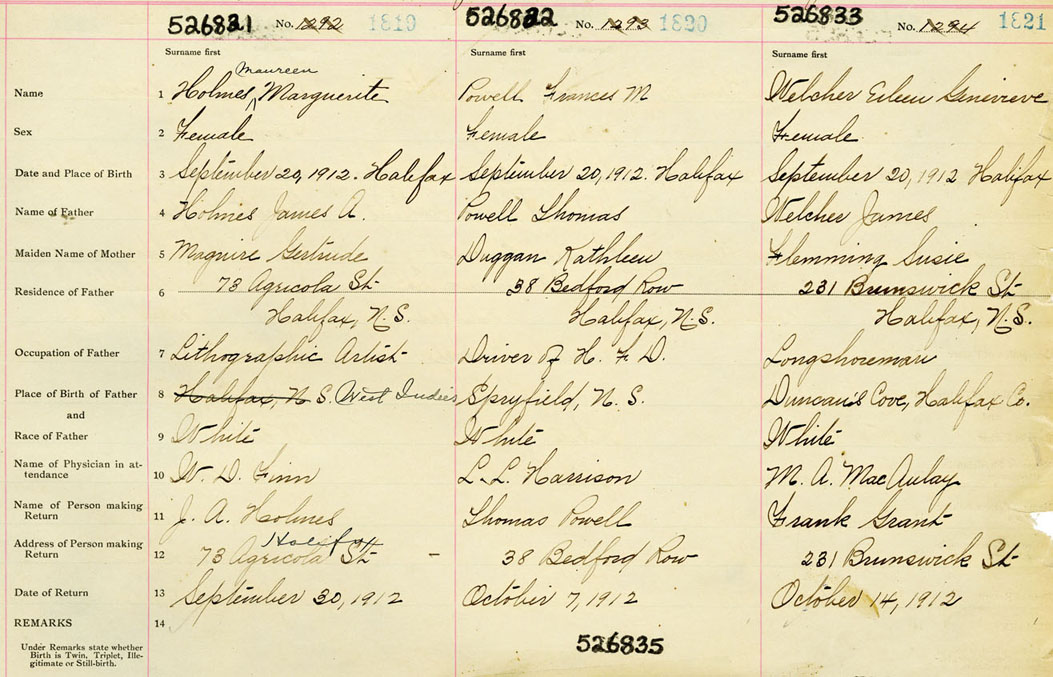 526821 No. 1292 1819 526822 No. 1293 1820 526833 No. 1294 1821
Surname first Surname first Surname first
Maureen
Name 1 Holmes, Marguerite Powell Frances M Welcher Eileen Genivieve
Sex 2 Female Female Female
Date and Place of Birth 3 September 20, 1912. Halifax September 20, 1912. Halifax September 20, 1912 Halifax
Name of Father 4 Holmes James A. Powell Thomas Welcher James
Maiden Name of Mother 5 Maguire Gertrude Duggan Kathleen Flemming Susie
Residence of Father 6 73 Agricola St 38 Bedford Row 231 Brunswick St
Halifax, N.S. Halifax, N.S. Halifax, N.S.
Occupation of Father 7 Lithographic Artist Driver of H. F. D. Longshoreman
Place of Birth of Father 8 Halifax, N.S. West Indies Spryfield, N.S. Duncan's Cove, Halifax Co.
and
Race of Father 9 White White White
Name of Physician in at-
tendance 10 W. D. Finn L. L. Harrison M. A. MacAulay
Name of Person making
Return 11 J. A. Holmes Thomas Powell Frank Grant
Halifax
Address of Person making
Return 12 73 Agricola St – 38 Bedford Row 231 Brunswick St
Date of Return 13 September 30, 1912 October 7, 1912 October 14, 1912
REMARKS 14
Under Remarks state whether
Birth is Twin, Triplet, Ille-
gitimate or Still-birth.
526835